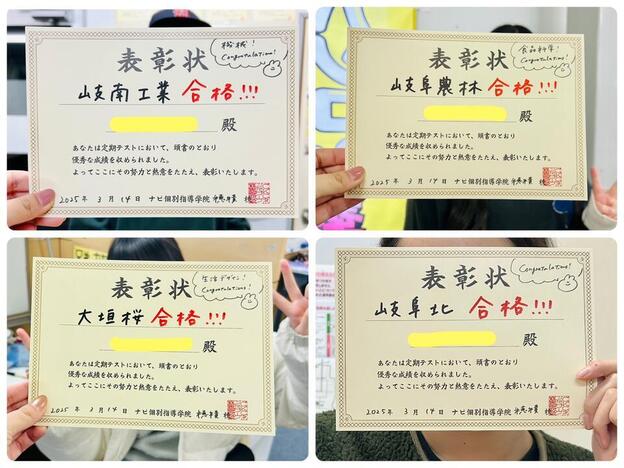 機械!
Congratulations!
表彰状
岐南工業 合格!!!
殿
あなたは定期テストにおいて、頭書のとおり
優秀な成績を収められました。
よってここにその努力と熱意をたたえ、表彰いたします。
2025年 3月 14日 ナビ個別指導学院 穂積校
食品科学!
Congratulations!
表彰状
岐阜農林 合格!!!
殿
あなたは定期テストにおいて、頭書のとおり
優秀な成績を収められました。
よってここにその努力と熱意をたたえ、表彰いたします。
2025年 3月 14日 ナビ個別指導学院
生活デザイン!
Congratulations!
表彰状
大垣桜 合格!!!
殿
あなたは定期テストにおいて、頭書のとおり
優秀な成績を収められました。
よってここにその努力と熱意をたたえ、表彰いたします。
2025年 3月 14日 ナビ個別指導学院
Congratulations!
表彰状
岐阜北 合格!!!
殿
あなたは定期テストにおいて、頭書のとおり
優秀な成績を収められました。
よってここにその努力と熱意をたたえ、表彰いたします。
2025年 3月 14日 ナビ個別指導学院